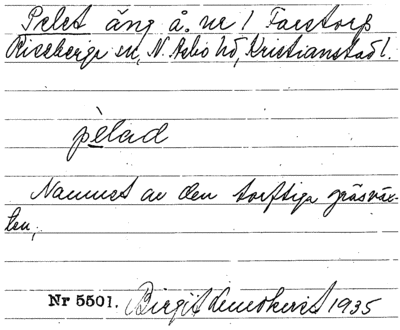 Pelet äng å. nr 1 Farstorp
Riseberga sn, N. Åsbo hd, Kristianstad l.
pèlad
Namnet av den torftiga gräsväx-
ten,
Nr 5501. Birgit Lennqvist 1935